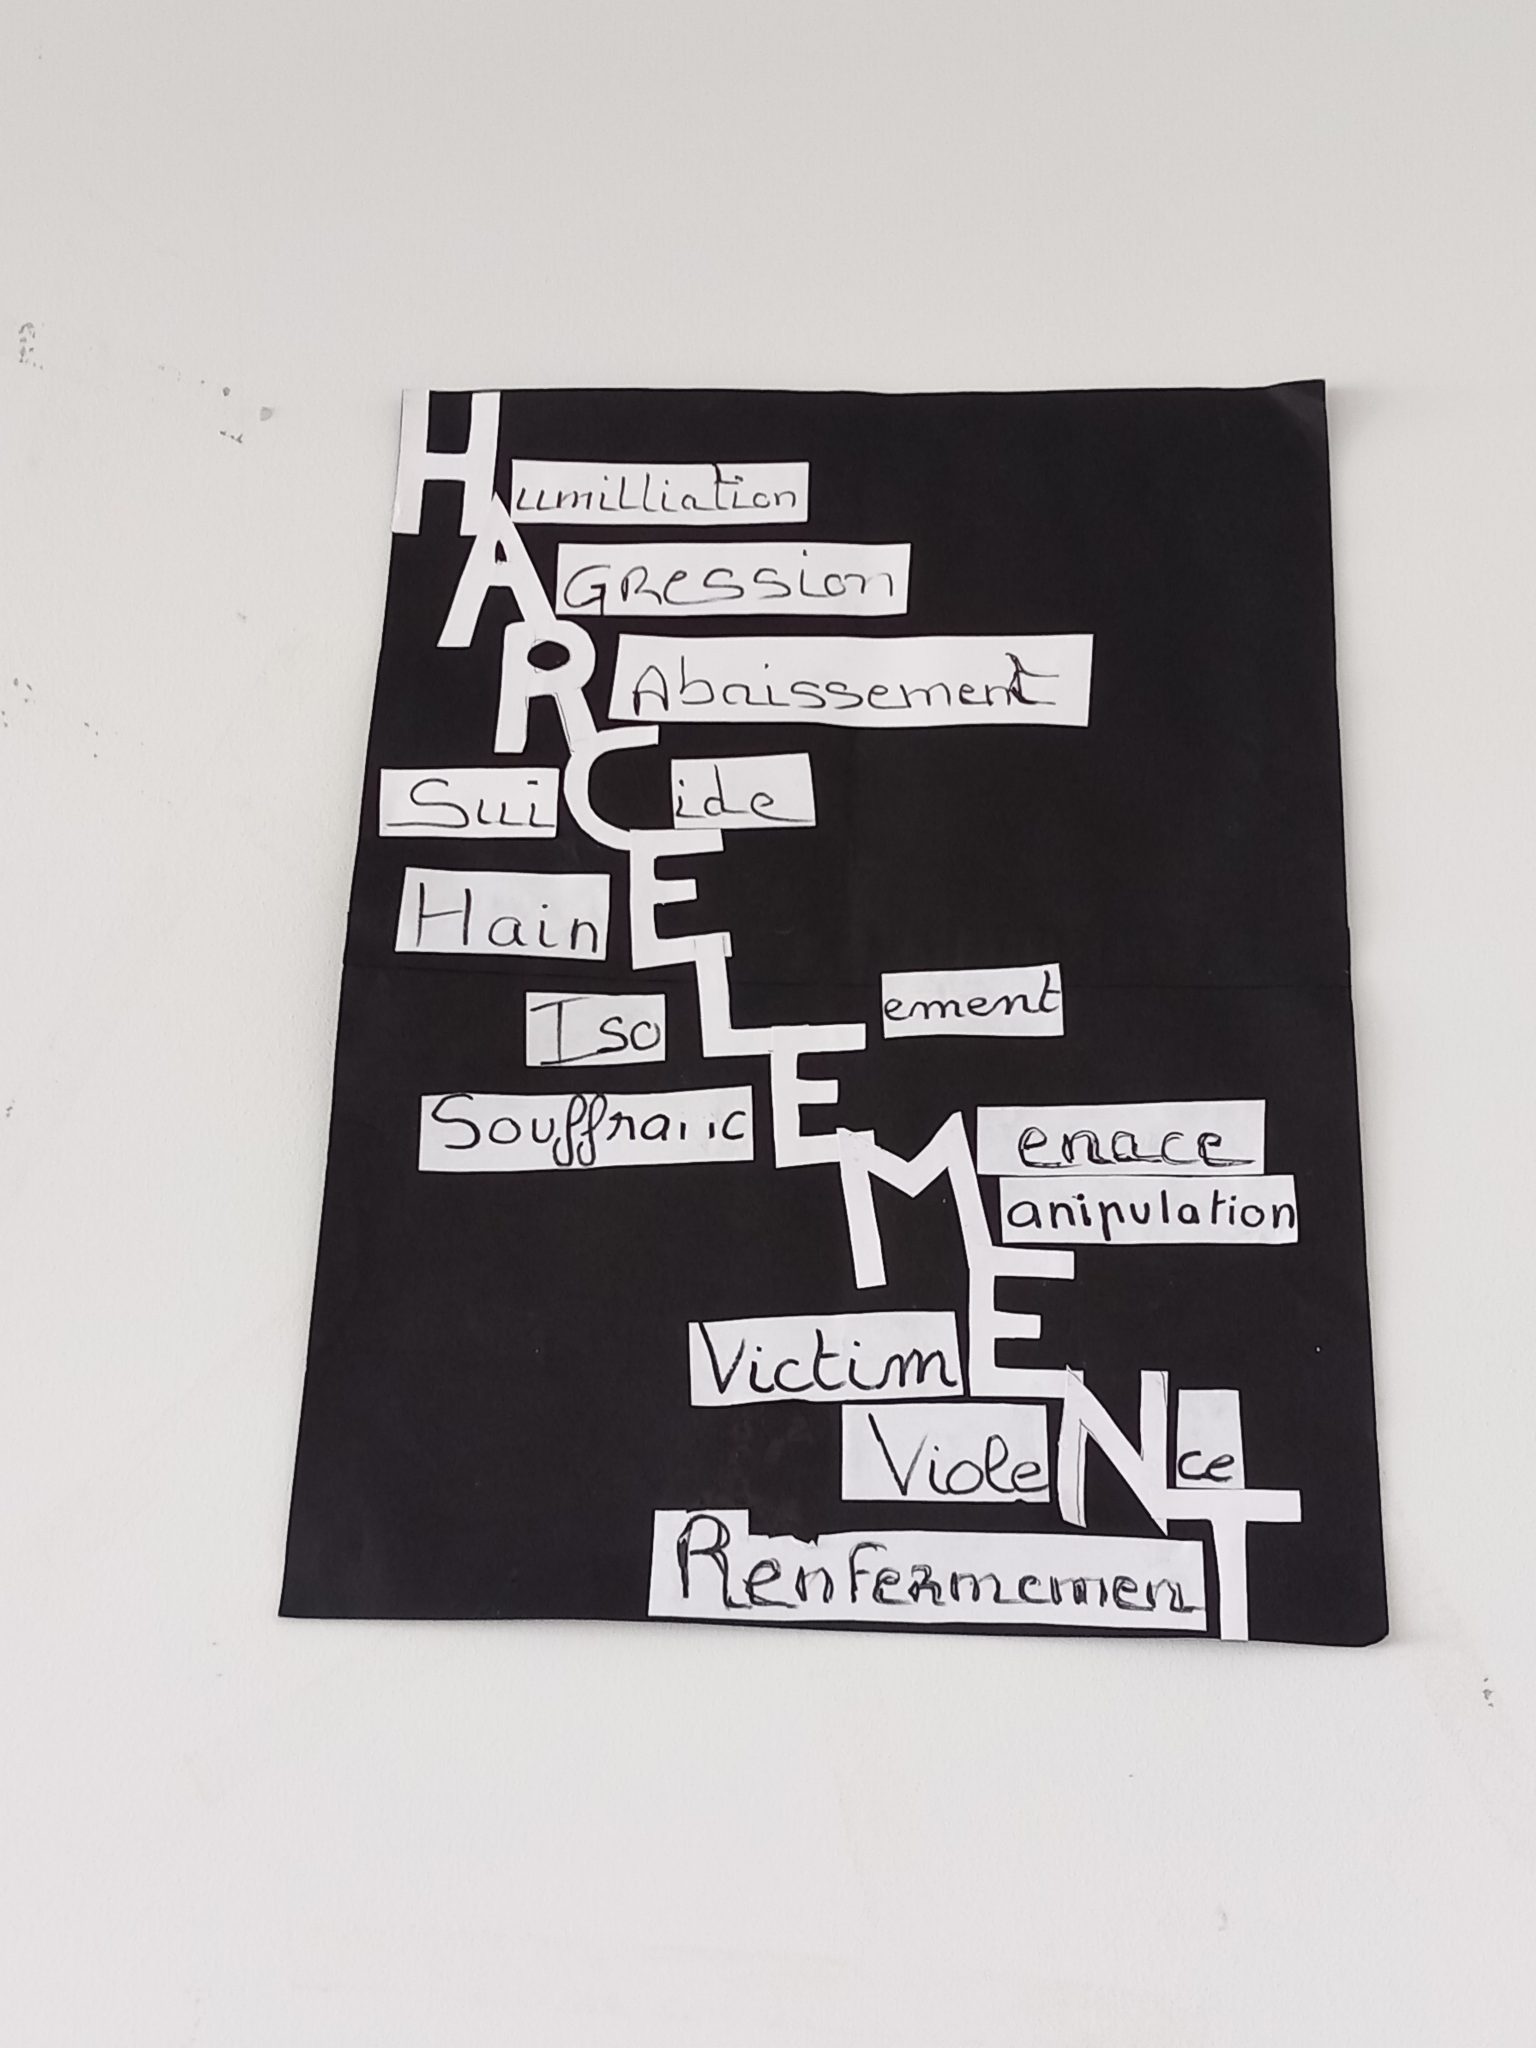 Humilliation
AGRession
R Abaissement
SuiCide
HainE
IsoLement
SouffrancE
Menace
anipulation
VictimE
VioleNce
RenfermemenT